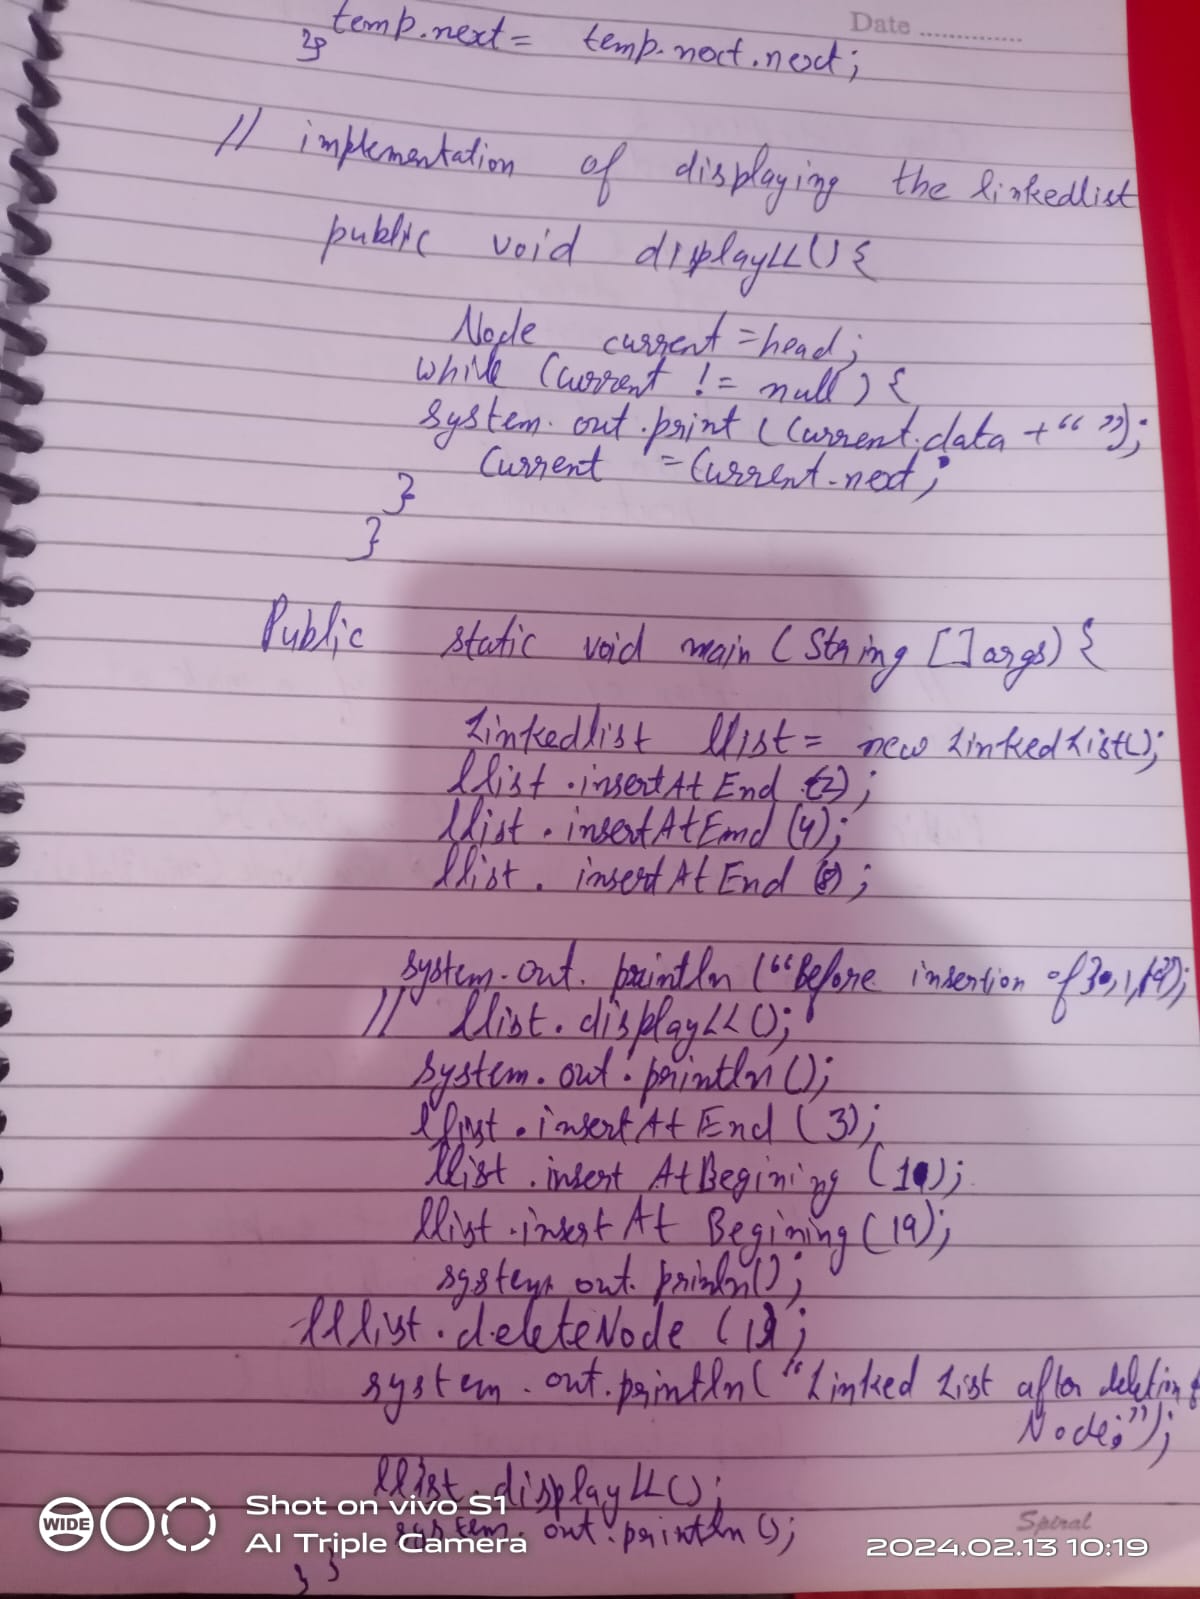 Date ..............
temp.next = temp.next.next;
}}
// implementation of displaying the linkedlist
public void displayLL() {
Node current = head;
while (current != null) {
system.out.print (current.data + “ ”);
Current = Current.next;
}
}
Public static void main (String [] args) {
Linkedlist llist = new LinkedList();
llist .insertAtEnd (2);
llist . insertAtEnd (4);
llist . insertAtEnd (8);
system.out. println (“Before insertion of 3,1,19”);
// llist . displayLL();
system. out . println ();
llist . insertAtEnd (3);
llist . insert AtBegining (1);
llist . insert At Begining (19);
system out. println();
llist . deleteNode (
system . out. println (“Linked List after deleting
Node:”);
llist . displayLL();
system. out. println ();
} }
WIDE
Shot on vivo S1
AI Triple Camera
Spiral
2024.02.13 10:19